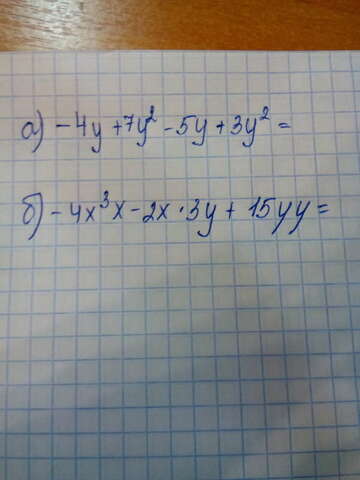 а) -4y + 7y² - 5y + 3y² =
б) - 4x³x - 2x · 3y + 15yy =